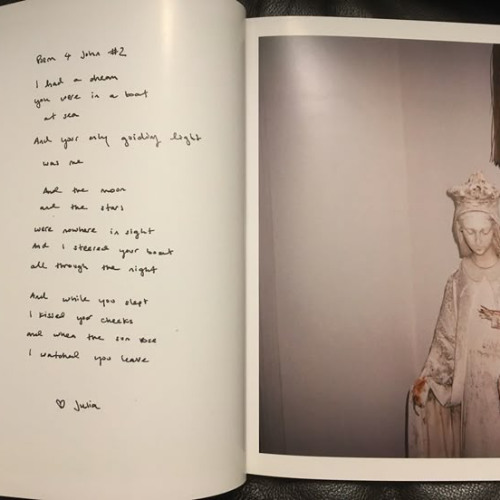 Poem 4 John #2
I had a dream
you were in a boat
at sea
And your only guiding light
was me
And the moon
and the stars
were nowhere in sight
And I steered your boat
all through the night
And while you slept
I kissed your cheeks
and when the sun rose
I watched you leave
♡ Julia